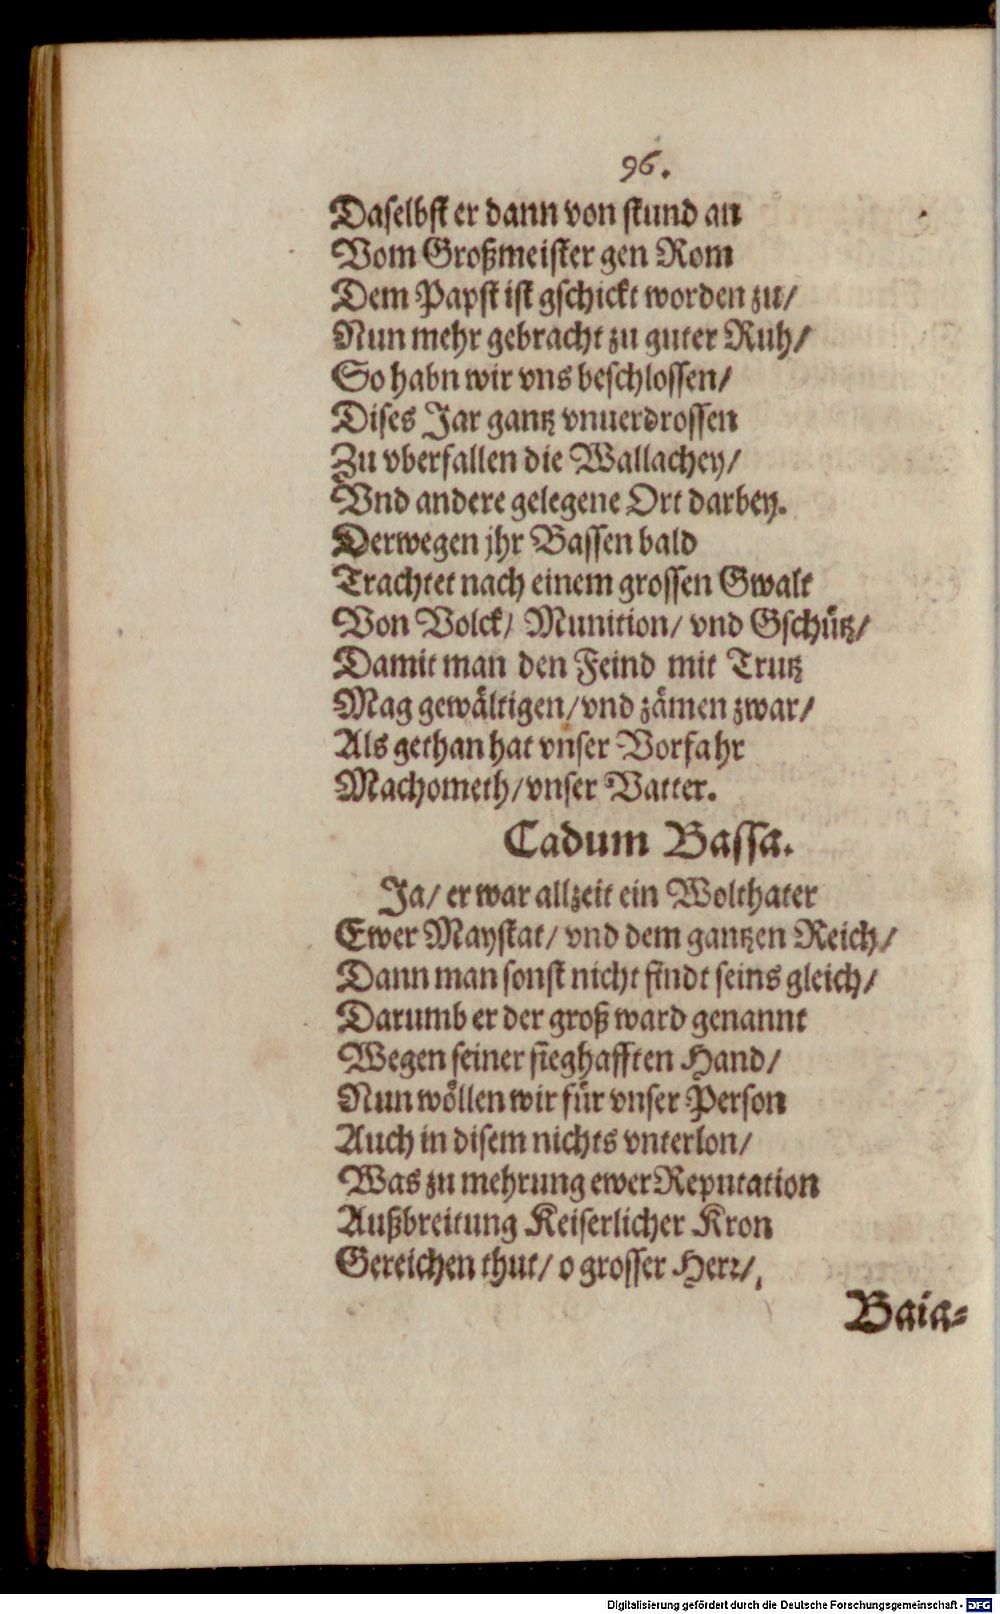 96.
Daselbst er dann von stund an
Vom Großmeister gen Rom
Dem Papst ist gschickt worden zu/
Nun mehr gebracht zu guter Ruh/
So habn wir vns beschlossen/
Dises Jar gantz vnuerdrossen
Zu vberfallen die Wallachey/
Vnd andere gelegene Ort darbey.
Derwegen jhr Bassen bald
Trachtet nach einem grossen Gwalt
Von Volck/ Munition/ vnd Gschütz/
Damit man den Feind mit Trutz
Mag gewältigen/ vnd zämen zwar/
Als gethan hat vnser Vorfahr
Machometh/ vnser Vatter.
Cadum Bassa.
Ja/ er war allzeit ein Wolthater
Ewer Maystat/ vnd dem gantzen Reich/
Dann man sonst nicht findt seins gleich/
Darumb er der groß ward genannt
Wegen seiner sieghafften Hand/
Nun wöllen wir für vnser Person
Auch in disem nichts vnterlon/
Was zu mehrung ewer Reputation
Außbreitung Keiserlicher Kron
Gereichen thut/ o grosser Herr/
Baia-
Digitalisierung gefördert durch die Deutsche Forschungsgemeinschaft - DFG